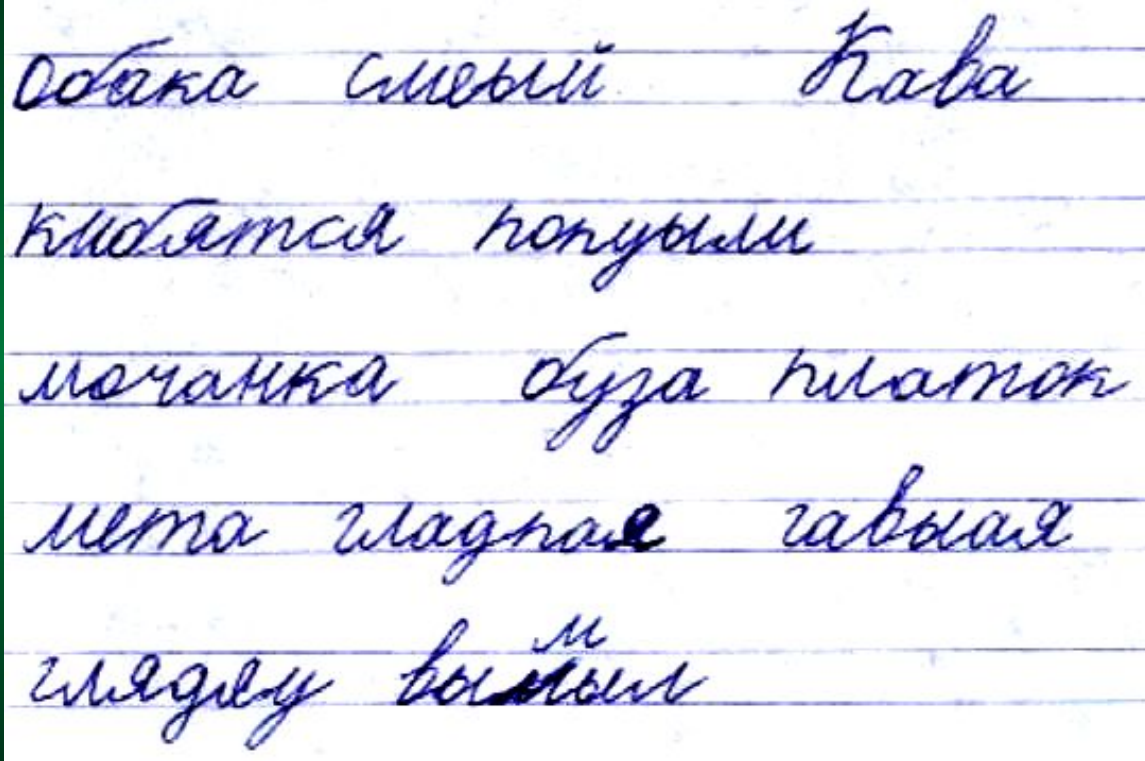 обака смеый Кава
книбятся попуыли
мочанка буза платок
мета гладпая гавыая
глядяу вымыл